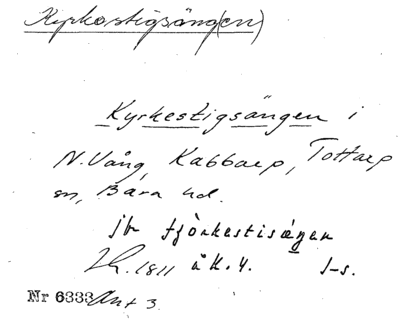 Kyrkostigsäng(en)
Kyrkestigsängen i
N. Vång, Kabbarp, Tottarp
sn, Bara hd.
jbr
1811 åk. 4. 1-s.
Nr 6333 Ant 3